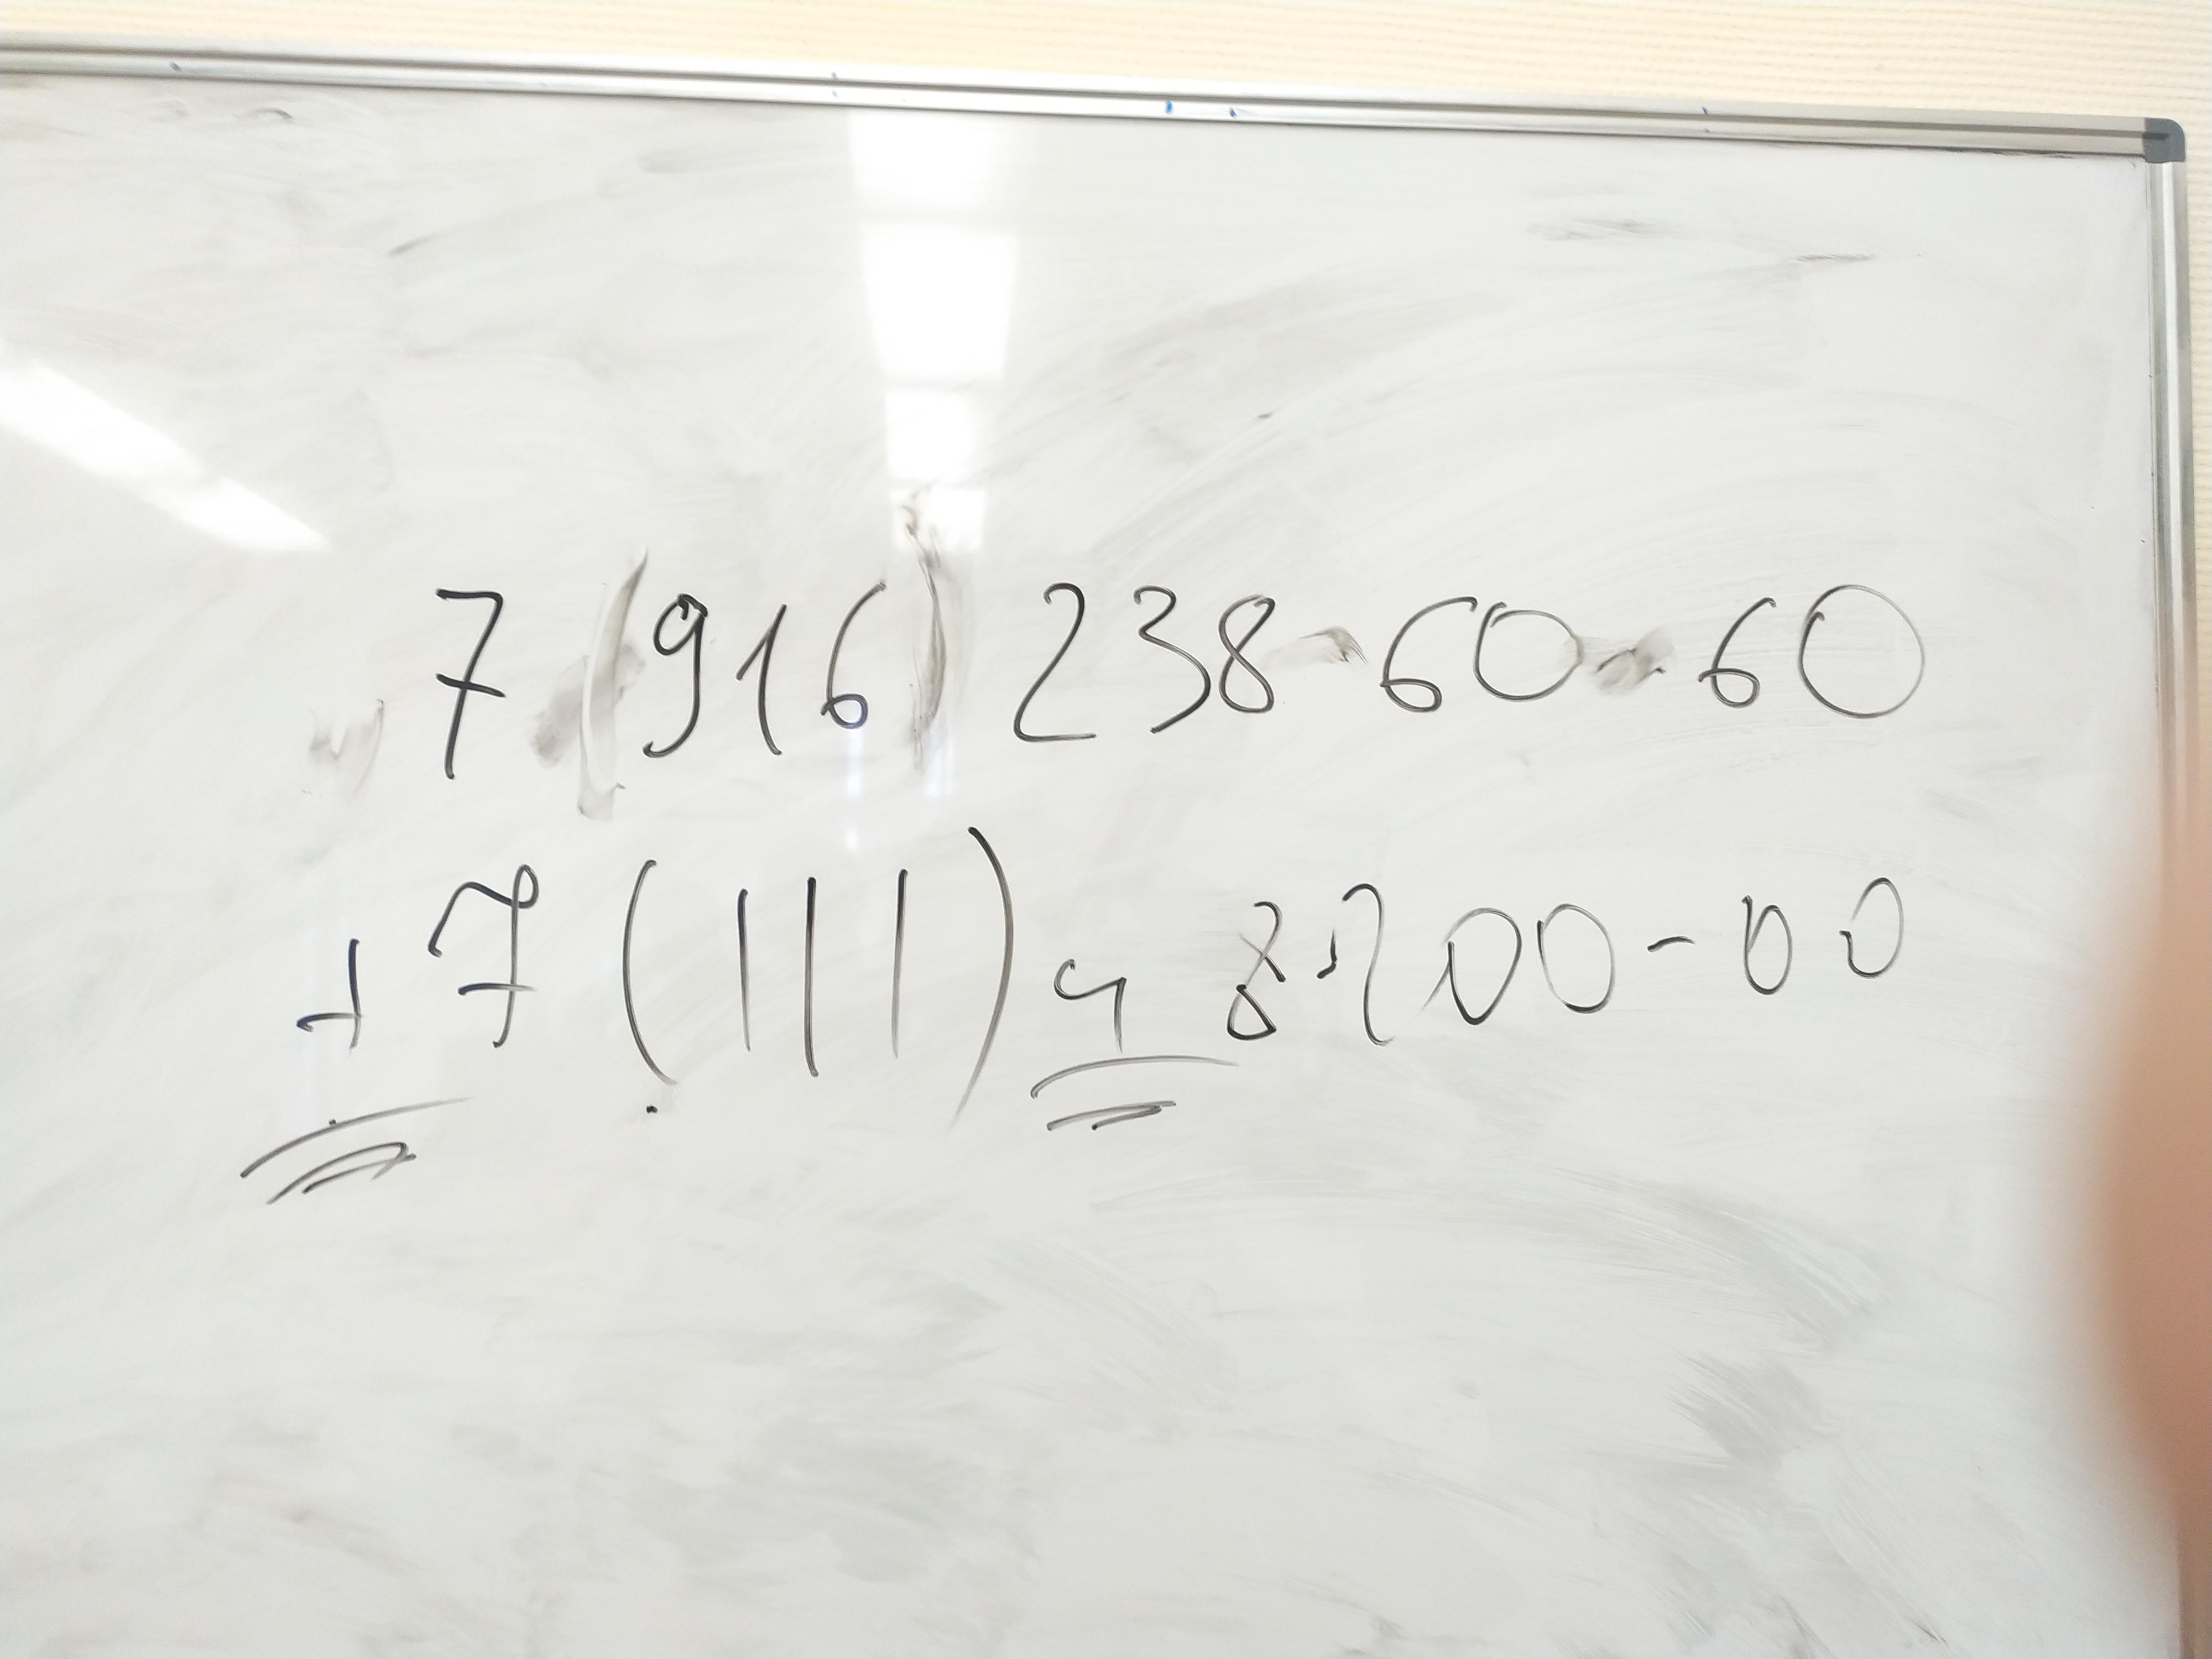 7 (916) 238-60-60
+7 (111) 4 8 2 00-00